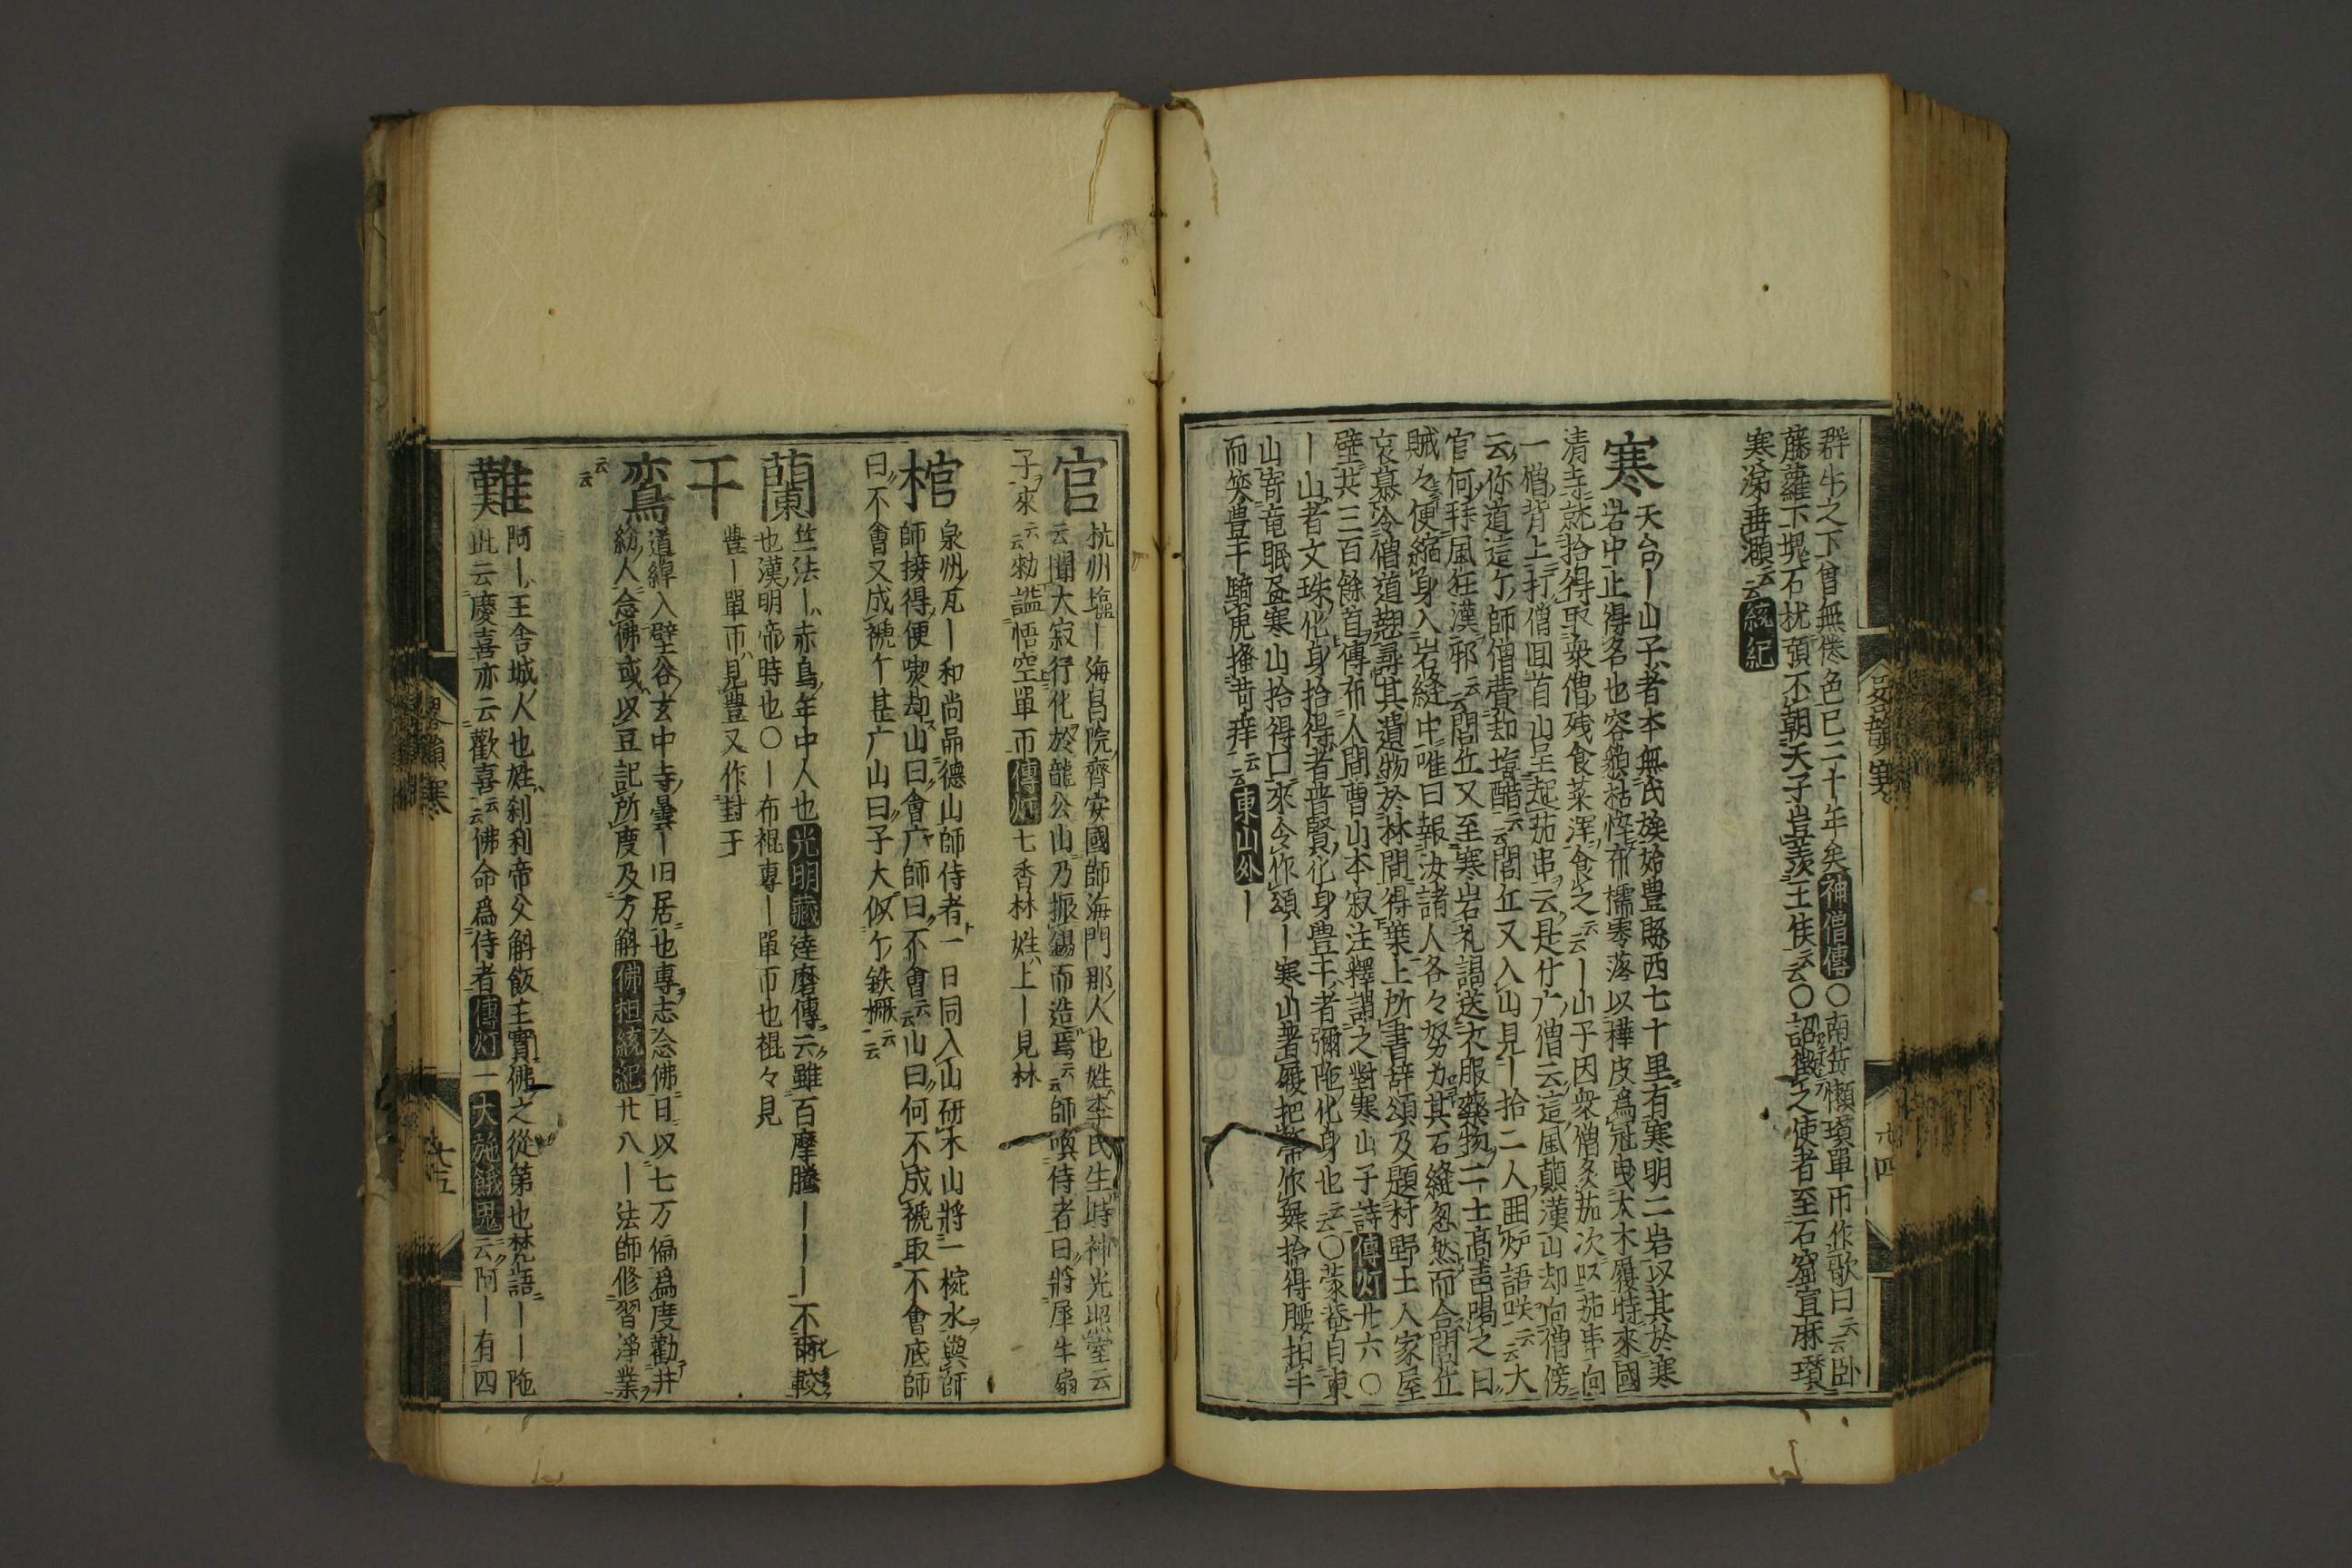 群牛之下曾無倦色已二十年矣神僧傳〇南岳懶瓚單帀作歌曰云云卧
藤蘿下塊石扰頭不朝天子豈羨王侯云云〇詔徴之使者至石窟宣麻瓚
寒涕垂瀬云云統紀
寒
天台ー山子者本無氏族始豊縣西七十里有寒明二岩以其於寒
岩中止得名也容貌枯悴布襦零落以樺皮為冠曳大木屐時來國
清寺就拾得取衆僧残食菜滓食之云云ー山子因衆僧炙茄次以茄串向
一僧背上打僧回首山呈起茄串云是什广僧云這風顛漢山却向僧傍
云你道這个師僧費却塩醋云云閭丘又入山見ー拾二人囲炉語咲云云大
官何拝風狂漢邪云云閭丘又至寒岩礼謁送衣服藥物二士髙声喝之曰
賊々便縮身入岩縫中唯曰報汝諸人各々努力其石縫忽然而合閭丘
哀慕令僧道翹尋其遺物於林間得葉上所書辞頌及題村野土人家屋
壁共三百餘首傳布人間曹山本寂注釋謂之對寒山子詩傳灯廿六〇
ー山者文珠化身拾得者普賢化身豊干者彌陁化身也云云〇蒙菴自東
山寄竜眠盃寒山拾得口來令作頌ー寒山著屐把箒你舞拾得腰拍手
而笑豊干騎虎搔苛痒云云東山外ー
官
杭州塩ー海昌院齊安國師海門郡人也姓李氏生時神光照室云
云聞大寂行化於龍公山乃振錫而造焉云云師喚侍者曰將犀牛扇
子來云云勑謚悟空單帀傳灯七香林姓上ー見林
棺
泉州瓦ー和尚品德山師侍者一日同入山研木山將一椀水與師
師接得便喫却山曰會广師曰不會云云山曰何不成褫取不會底師
曰不會又成褫个甚广山曰子大似个鉄橛云云
蘭
竺法ー赤烏年中人也光明藏逹磨傳云雖百摩騰ーーー不爾較
也漢明帝時也〇ー布裩專ー單帀也裩々見
干
豊ー單帀見豊又作封于
鸞
道綽入壁谷玄中寺曇ー旧居也專志念佛日以七万偏為度勸井
紛人念佛或以豆記所度及万斛佛祖統紀廿八ー法師修習淨業
云云
難
阿ー王舎城人也姓刹利帝父斛飯王實佛之從第也梵語ーー陁
此云慶喜亦云歡喜云云佛命為侍者傳灯一大施餓鬼云阿ー有四
畧韻寒
七四
畧韻寒
七五